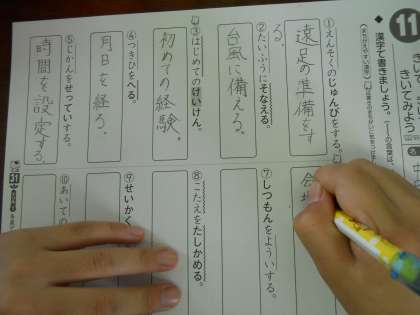 11
きいて
きいてみよう
◆漢字で書きましょう。
①えんそくのじゅんびをする。
遠足の準備をする。
②たいふうにそなえる。
台風に備える。
③はじめてのけいけん。
初めての経験。
④つきひをへる。
月日を経る。
⑤じかんをせっていする。
時間を設定する。
⑦しつもんをよういする。
⑧こたえをたしかめる。
⑨せいかく
⑩あいての
31